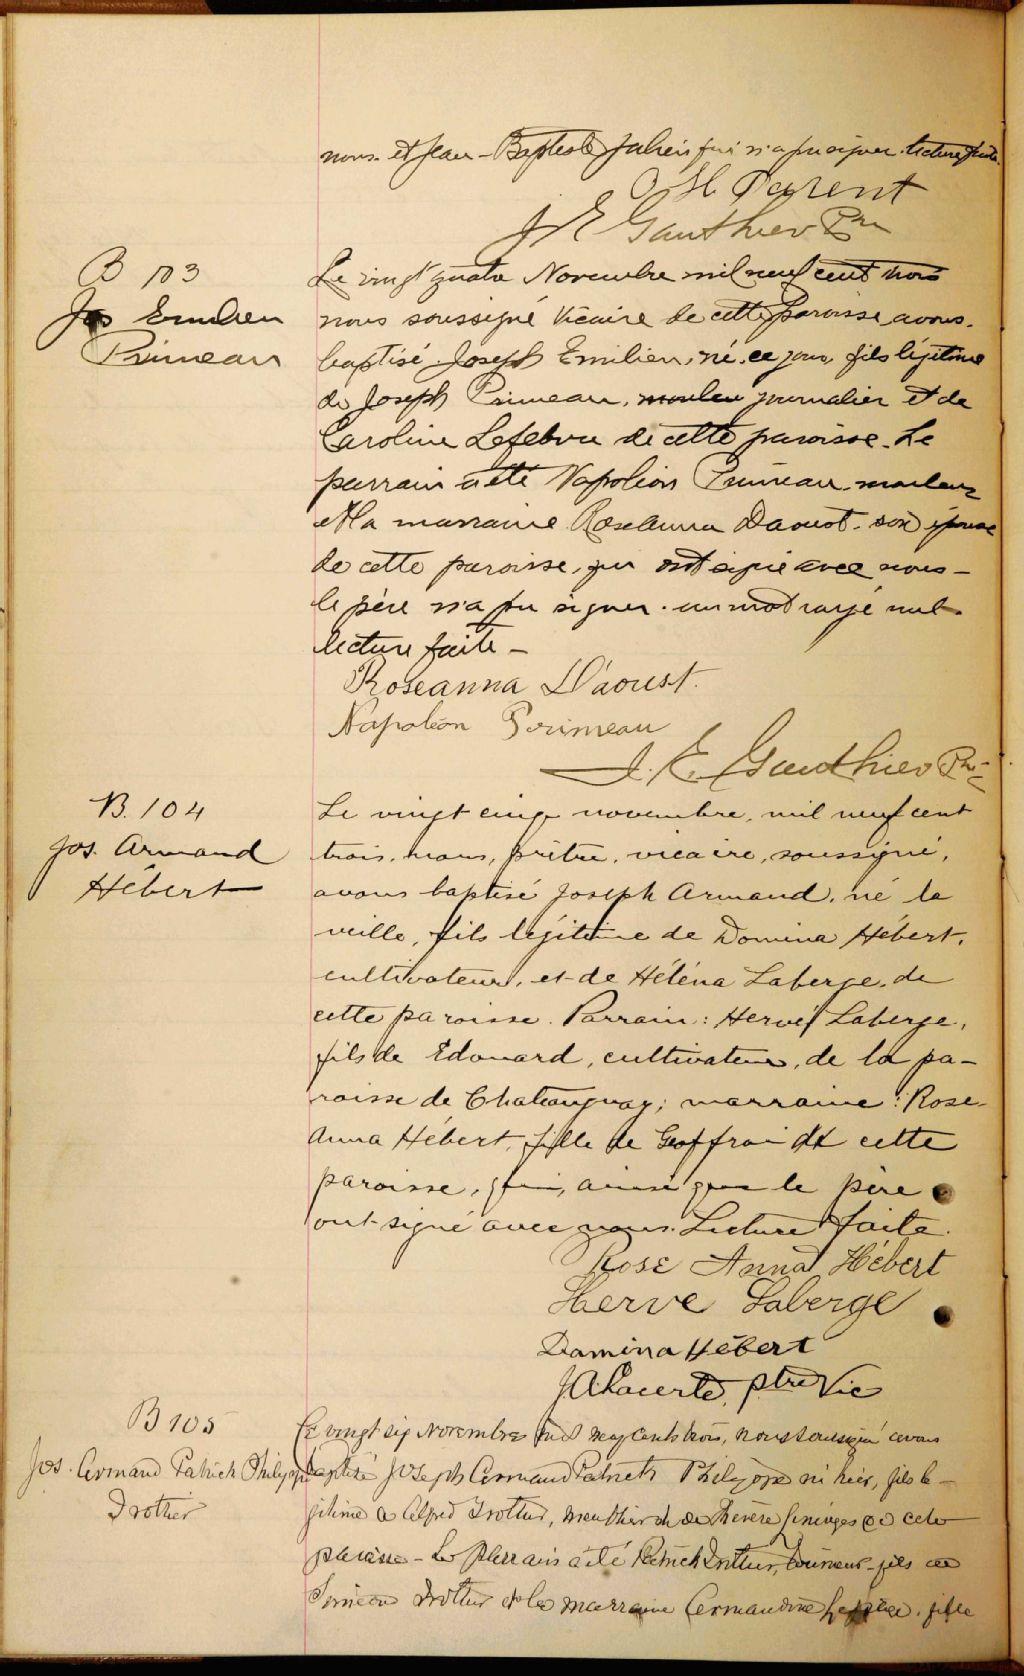 nous et Jean-Baptiste Julien qui n'a pu signer. lecture faite.
O H Parent
J E Gauthier Ptre
B 103
Jos Emilien
Primeau
Le vingt quatre Novembre mil neuf cent trois
nous soussigné Vicaire de cette paroisse avons
baptisé Joseph Emilien, né ce jour, fils légitime
de Joseph Primeau, mouleur journalier et de
Caroline Lefebvre de cette paroisse. Le
parrain a été Napoléon Primeau mouleur
et la marraine Roseanna Daoust son épouse
de cette paroisse, qui ont signé avec nous -
le père n'a pu signer. un mot rayé nul.
lecture faite -
Roseanna D'aoust.
Napoléon Primeau
J. E. Gauthier Ptre
B. 104
Jos. Armand
Hébert
Le vingt cinq novembre, mil neuf cent
trois, nous, prêtre, vicaire, soussigné,
avons baptisé Joseph Armand, né la
veille, fils légitime de Domina Hébert,
cultivateur, et de Héléna Laberge, de
cette paroisse. Parrain: Hervé Laberge,
fils de Edouard, cultivateur, de la pa-
roisse de Chateauguay; marraine: Rose-
Anna Hébert, fille de Geoffroi de cette
paroisse, qui, ainsi que le père
ont signé avec nous. Lecture faite.
Rose Anna Hébert
Herve Laberge
Damina Hébert
JALacerte, ptre Vic
B 105
Jos. Armand Patrick Philippe
Trottier
Le vingt six Novembre mil neuf cents trois, nous soussigné avons
baptisé Joseph Armand Patrick Philippe né hier, fils lé-
gitime de Alfred Trottier, et de cette
paroisse - Le Parrain a été Patrick Trottier, fils de
Siméon Trottier et la marraine Armandine fille